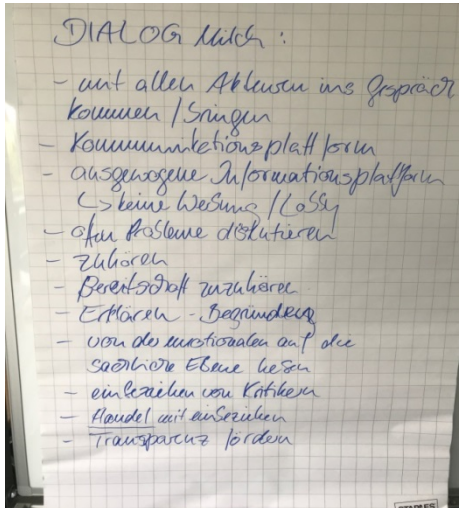 DIALOG Milch:
- mit allen Akteuren ins Gespräch
kommen / bringen
- Kommunikationsplattform
- ausgewogene Informationsplattform
↳ keine Werbung / Lobby
- offen Probleme diskutieren
- zuhören
- Bereitschaft zuzuhören
- Erklären - Begründen
- von der emotionalen auf die
sachliche Ebene
- einbeziehen von Kritikern
- Handel mit einbeziehen
- Transparenz fördern
STAPLES